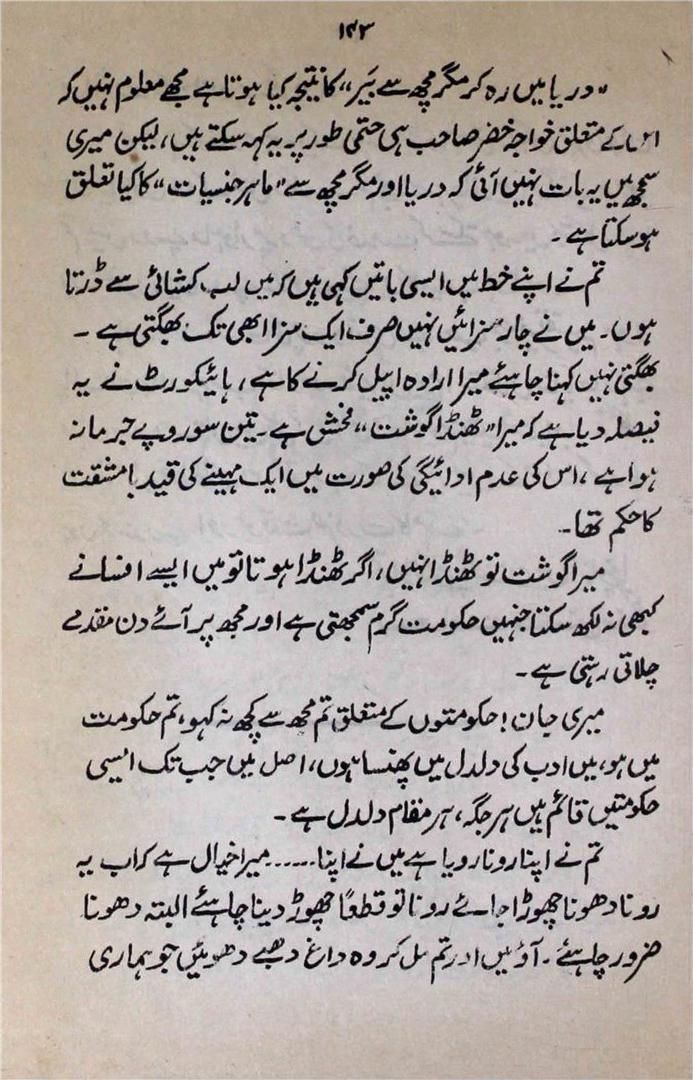 ۱۴۳
"دریا میں رہ کر مگرمچھ سے بَیر" کا نتیجہ کیا ہوتا ہے مجھے معلوم نہیں کہ
اس کے متعلق خواجہ خضر صاحب ہی حتمی طور پر یہ کہہ سکتے ہیں، لیکن میری
سمجھ میں یہ بات نہیں آئی کہ دریا اور مگرمچھ سے "ماہر جنسیات" کا کیا تعلق
ہو سکتا ہے۔
تم نے اپنے خط میں ایسی باتیں کہی ہیں کہ میں لب کشائی سے ڈرتا
ہوں۔ میں نے چار سزائیں نہیں صرف ایک سزا ابھی تک بھگتی ہے۔
بھگتی نہیں کہنا چاہئے میرا ارادہ اپیل کرنے کا ہے، ہائیکورٹ نے یہ
فیصلہ دیا ہے کہ میرا "ٹھنڈا گوشت" فحش ہے۔ تین سو روپے جرمانہ
ہوا ہے، اس کی عدم ادائیگی کی صورت میں ایک مہینے کی قید بامشقت
کا حکم تھا۔
میرا گوشت تو ٹھنڈا نہیں، اگر ٹھنڈا ہوتا تو میں ایسے افسانے
کبھی نہ لکھ سکتا جنہیں حکومت گرم سمجھتی ہے اور مجھ پر آئے دن مقدمے
چلاتی رہتی ہے۔
میری جان! حکومتوں کے متعلق تم مجھ سے کچھ نہ کہو، تم حکومت
میں ہو، میں ادب کی دلدل میں پھنسا ہوں، اصل میں جب تک ایسی
حکومتیں قائم ہیں ہر جگہ، ہر مقام دلدل ہے۔
تم نے اپنا رونا رویا ہے میں نے اپنا ...... میرا خیال ہے کہ اب یہ
رونا دھونا چھوڑا جائے رونا تو قطعاً چھوڑ دینا چاہئے البتہ دھونا
ضرور چاہئے۔ آؤ میں اور تم مل کر وہ داغ دھبے دھوئیں جو ہماری